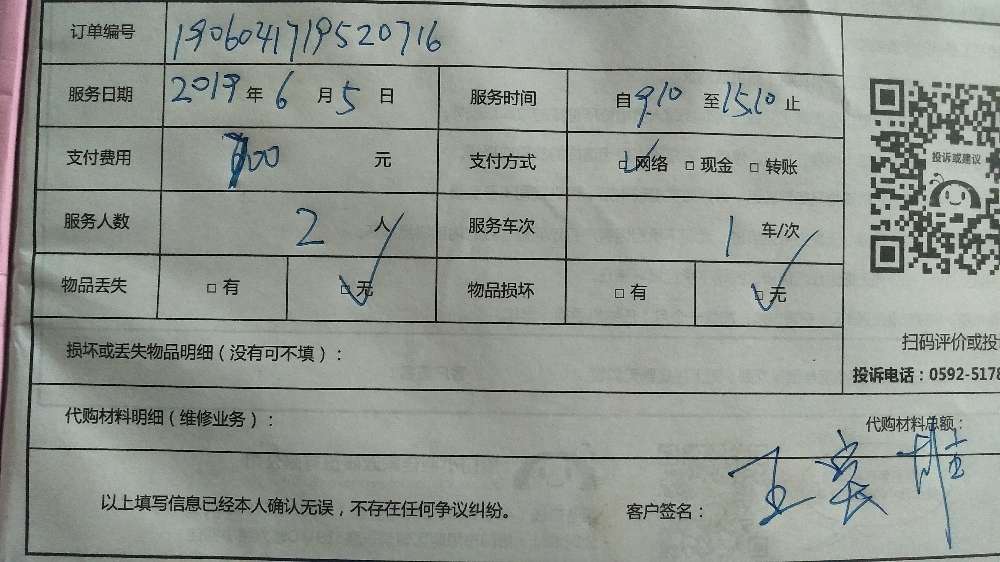 订单编号 1906041719520716
服务日期 2019年6月5日 服务时间 自9.10至15.10止
支付费用 00元 支付方式 □网络 □现金 □转账
投诉或建议
服务人数 2人 服务车次 1车/次
物品丢失 □有 □无 物品损坏 □有 □无
扫码评价或投
损坏或丢失物品明细（没有可不填）：
投诉电话：0592-5178
代购材料明细（维修业务）： 代购材料总额：
以上填写信息已经本人确认无误，不存在任何争议纠纷。 客户签名：王